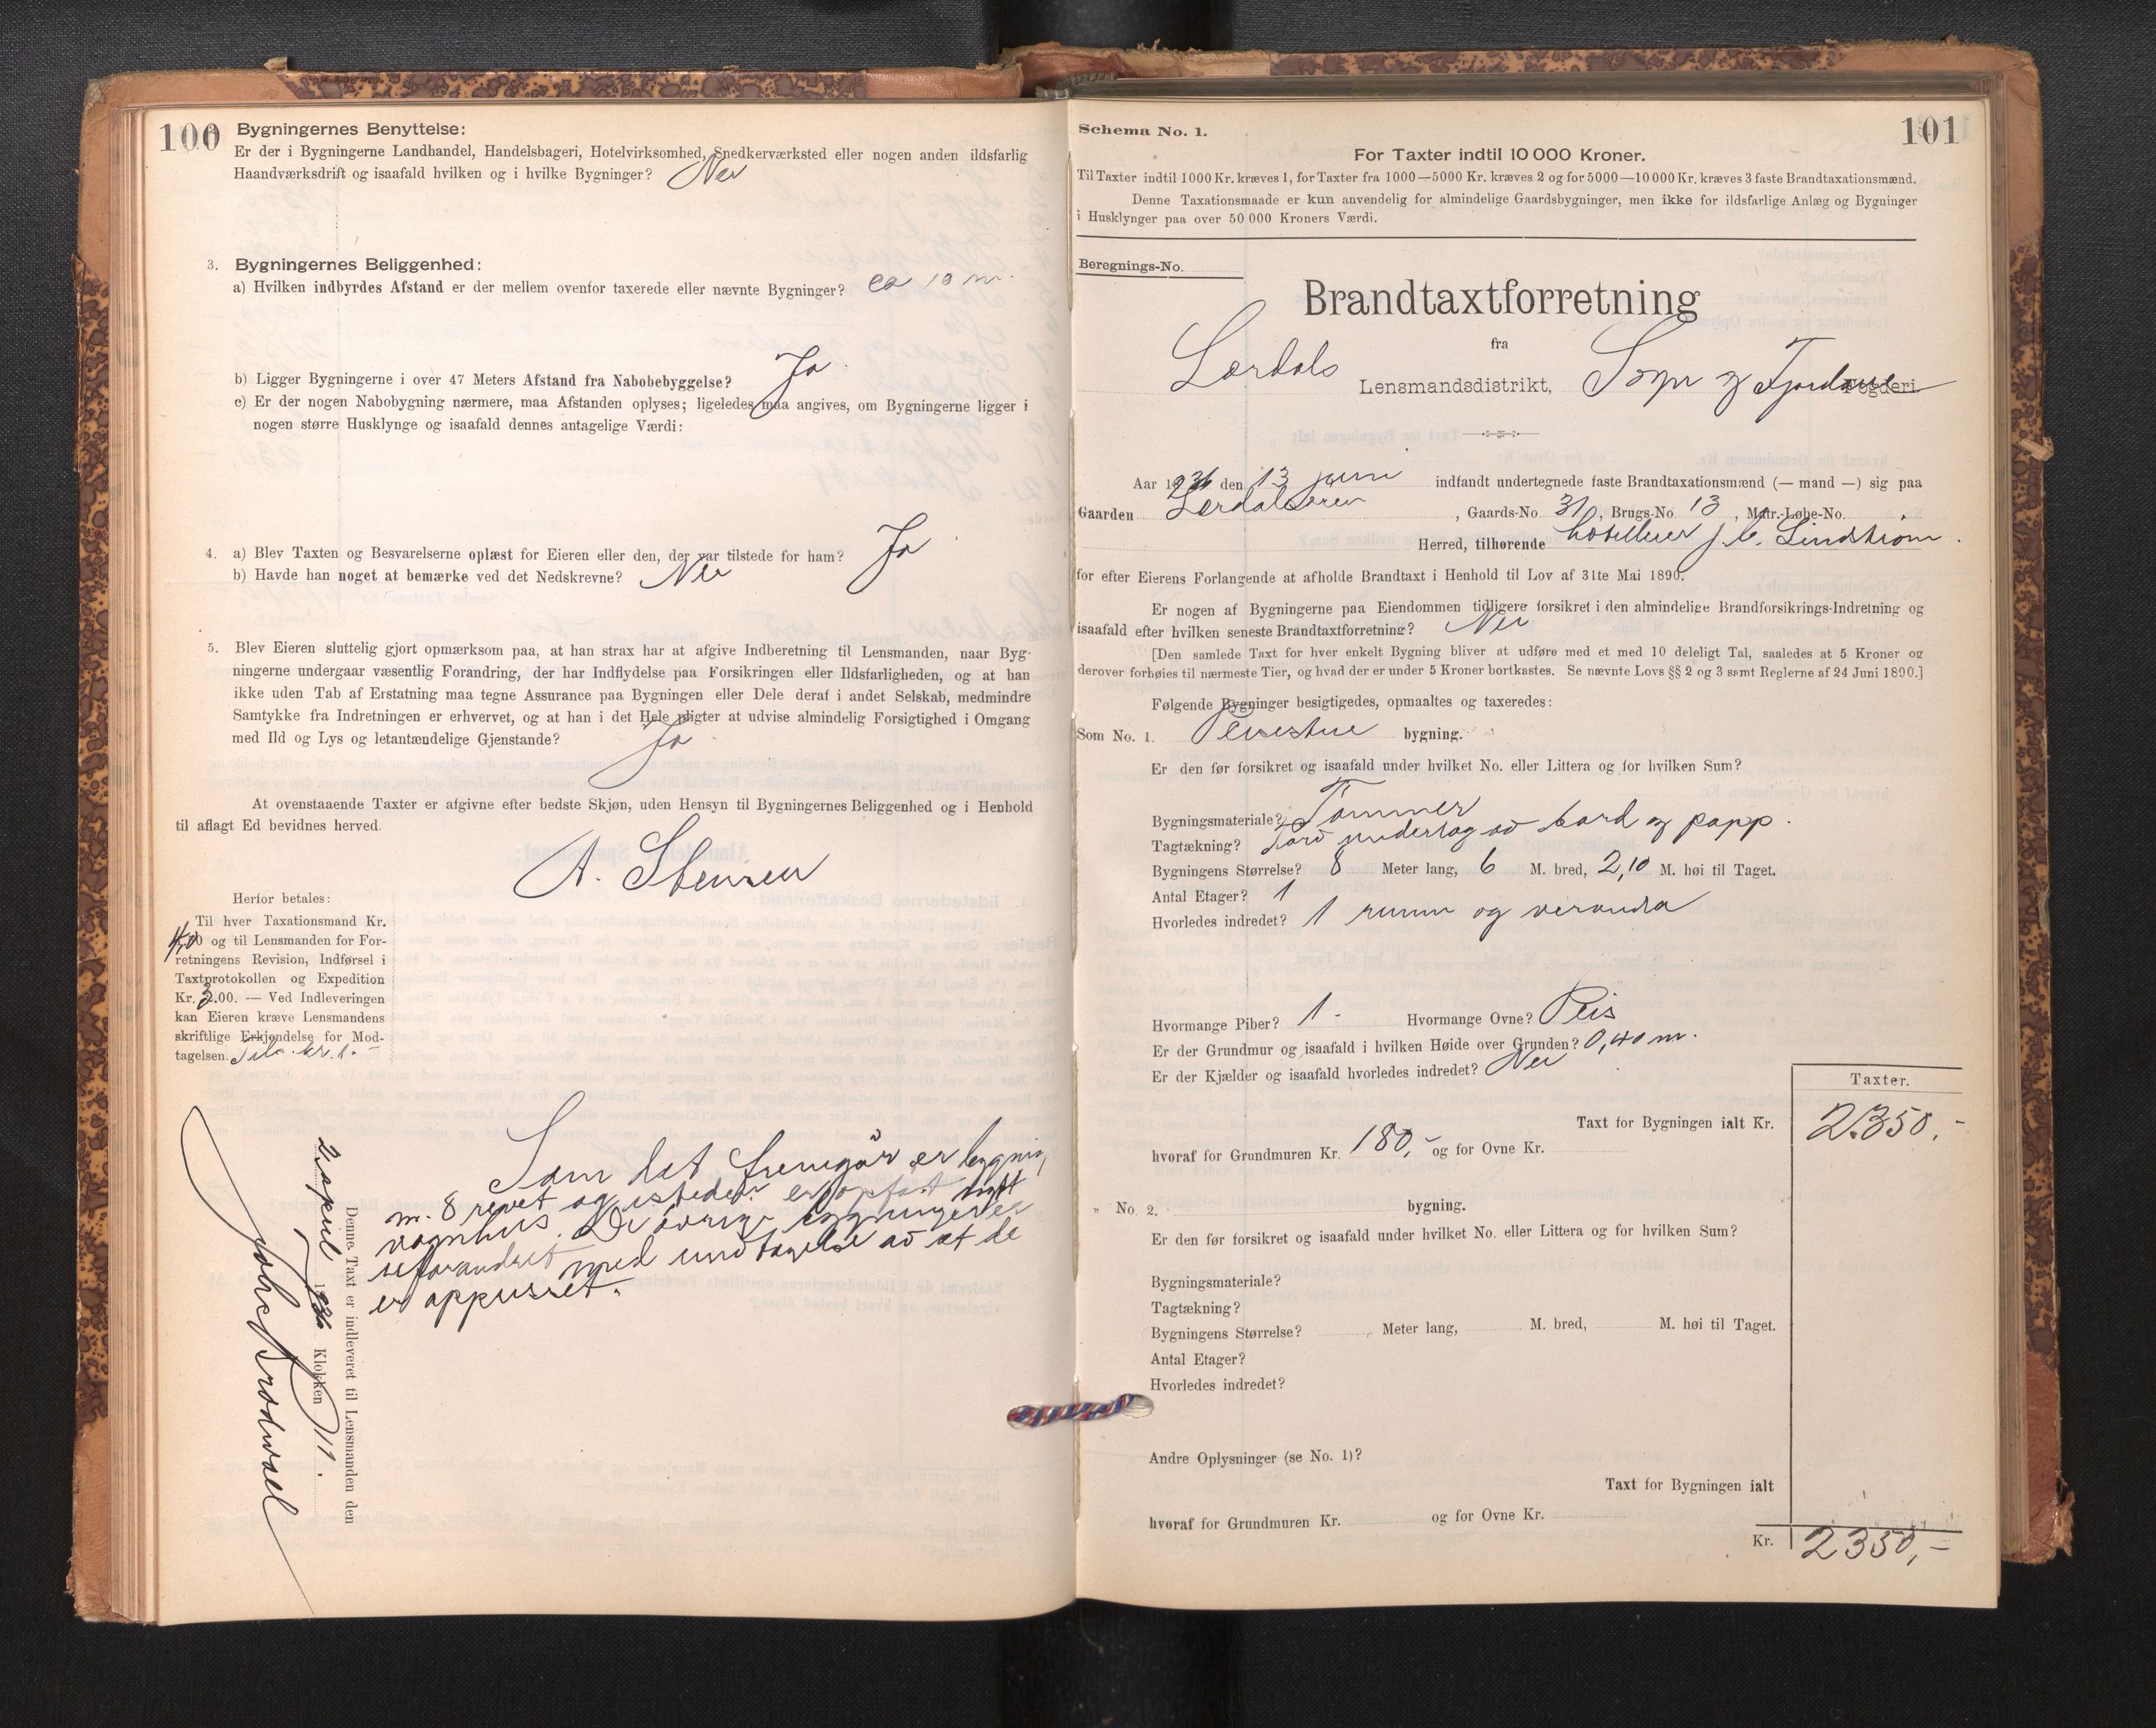 100
2. Bygningernes Benyttelse:
Er der i Bygningerne Landhandel, Handelsbageri, Hotelvirksomhed, Snedkerværksted eller nogen anden ildsfarlig
Haandværksdrift og isaafald hvilken og i hvilke Bygninger? Nei
3. Bygningernes Beliggenhed:
a) Hvilken indbyrdes Afstand er der mellem ovenfor taxerede eller nævnte Bygninger? ca 10 m.
b) Ligger Bygningerne i over 47 Meters Afstand fra Nabobebyggelse? Ja.
c) Er der nogen Nabobygning nærmere, maa Afstanden oplyses; ligeledes maa angives, om Bygningerne ligger i
nogen større Husklynge og isaafald dennes antagelige Værdi:
4. a) Blev Taxten og Besvarelserne oplæst for Eieren eller den, der var tilstede for ham? Ja
b) Havde han noget at bemærke ved det Nedskrevne? Nei
5. Blev Eieren sluttelig gjort opmærksom paa, at han strax har at afgive Indberetning til Lensmanden, naar Byg-
ningerne undergaar væsentlig Forandring, der har Indflydelse paa Forsikringen eller Ildsfarligheden, og at han
ikke uden Tab af Erstatning maa tegne Assurance paa Bygningen eller Dele deraf i andet Selskab, medmindre
Samtykke fra Indretningen er erhvervet, og at han i det Hele pligter at udvise almindelig Forsigtighed i Omgang
med Ild og Lys og letantændelige Gjenstande? Ja
At ovenstaaende Taxter er afgivne efter bedste Skjøn, uden Hensyn til Bygningernes Beliggenhed og i Henhold
til aflagt Ed bevidnes herved.
A. Stensen
Herfor betales:
Til hver Taxationsmand Kr.
4,00 og til Lensmanden for For-
retningens Revision, Indførsel i
Taxtprotokollen og Expedition
Kr. 3.00. — Ved Indleveringen
kan Eieren kræve Lensmandens
skriftlige Erkjendelse for Mod-
tagelsen. kr. 1.-
Som det fremgår er bygning
nr. 8 revet og istedet er opført nytt
vognhus. De øvrige bygninger er
uforandret med undtagelse av at de
er oppusset.
Denne Taxt er indleveret til Lensmanden den
2. april 1936 Klokken 11.
101
Schema No. 1.
For Taxter indtil 10 000 Kroner.
Til Taxter indtil 1000 Kr. kræves 1, for Taxter fra 1000—5000 Kr. kræves 2 og for 5000—10 000 Kr. kræves 3 faste Brandtaxationsmænd.
Denne Taxationsmaade er kun anvendelig for almindelige Gaardsbygninger, men ikke for ildsfarlige Anlæg og Bygninger
i Husklynger paa over 50 000 Kroners Værdi.
Beregnings-No.
Brandtaxtforretning
fra
Lærdals Lensmandsdistrikt, Sogn og Fjordane Fogderi.
Aar 1936 den 13 juni indfandt undertegnede faste Brandtaxationsmænd (— mand —) sig paa
Gaarden Lærdalsøren, Gaards-No 31, Brugs-No 13, Matr.-Løbe-No.
Herred, tilhørende hotelleier J. C. Lindstrøm.
for efter Eierens Forlangende at afholde Brandtaxt i Henhold til Lov af 31te Mai 1890.
Er nogen af Bygningerne paa Eiendommen tidligere forsikret i den almindelige Brandforsikrings-Indretning og
isaafald efter hvilken seneste Brandtaxtforretning? Nei
[Den samlede Taxt for hver enkelt Bygning bliver at udføre med et med 10 deleligt Tal, saaledes at 5 Kroner og
derover forhøies til nærmeste Tier, og hvad der er under 5 Kroner bortkastes. Se nævnte Lovs §§ 2 og 3 samt Reglerne af 24 Juni 1890.]
Følgende Bygninger besigtigedes, opmaaltes og taxeredes:
Som No. 1. Peisestue bygning.
Er den før forsikret og isaafald under hvilket No. eller Littera og for hvilken Sum?
Bygningsmateriale? Tømmer
Tagtækning? Torv underlag av bord og papp.
Bygningens Størrelse? 8 Meter lang, 6 M. bred, 2,10 M. høi til Taget.
Antal Etager? 1
Hvorledes indredet? 1 rumm og veranda
Hvormange Piber? 1. Hvormange Ovne? Peis
Er der Grundmur og isaafald i hvilken Høide over Grunden? 0,40 m.
Er der Kjælder og isaafald hvorledes indredet? Nei
Taxter.
Taxt for Bygningen ialt Kr. 2.350,-
hvoraf for Grundmuren Kr. 180,- og for Ovne Kr.
" No. 2. bygning.
Er den før forsikret og isaafald under hvilket No. eller Littera og for hvilken Sum?
Bygningsmateriale?
Tagtækning?
Bygningens Størrelse? Meter lang, M. bred, M. høi til Taget.
Antal Etager?
Hvorledes indredet?
Andre Oplysninger (se No. 1)?
Taxt for Bygningen ialt
hvoraf for Grundmuren Kr. og for Ovne Kr.
Kr. 2350,-